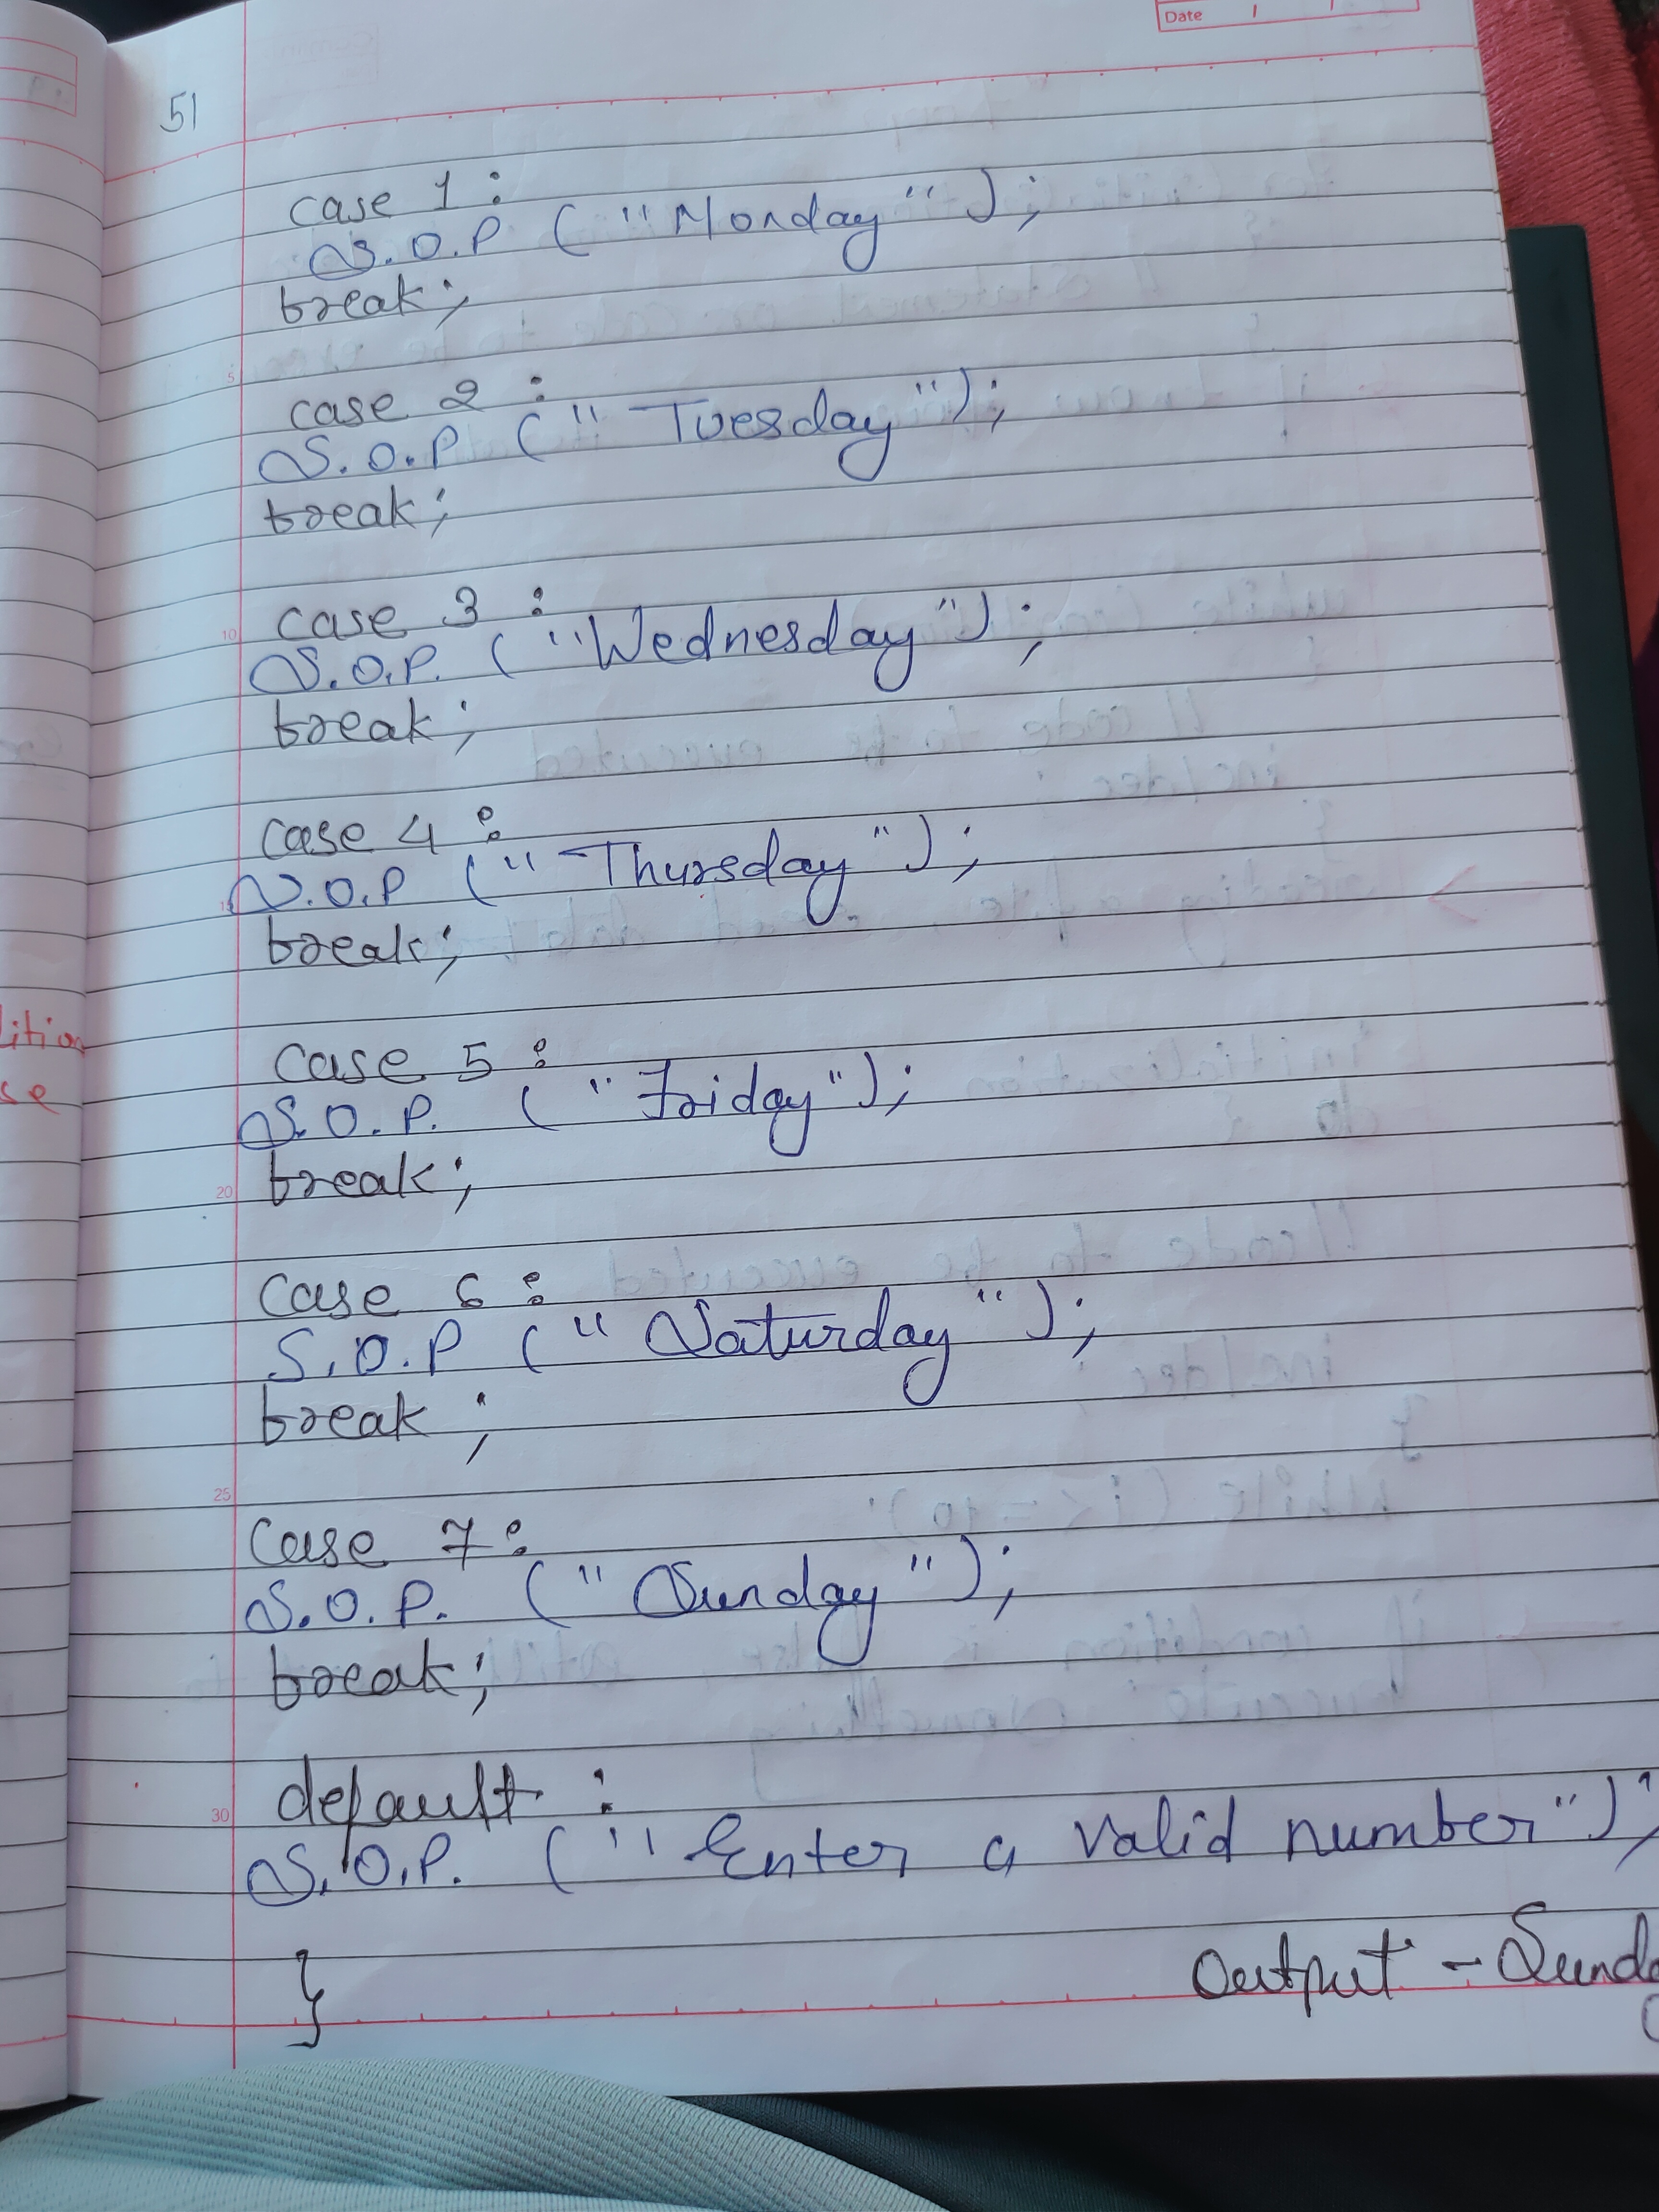 Date
51
case 1 :
S.O.P ("Monday");
break;
5
case 2 :
S.O.P ("Tuesday");
break;
10
case 3 :
S.O.P. ("Wednesday");
break;
case 4 :
S.O.P ("Thursday");
break;
lition
case 5 :
se
S.O.P. ("Friday");
break;
20
case 6 :
S.O.P ("Saturday");
break ;
25
case 7 :
S.O.P. ("Sunday");
break;
default :
30
S.O.P. ("Enter a valid number");
}
Output - Sunda